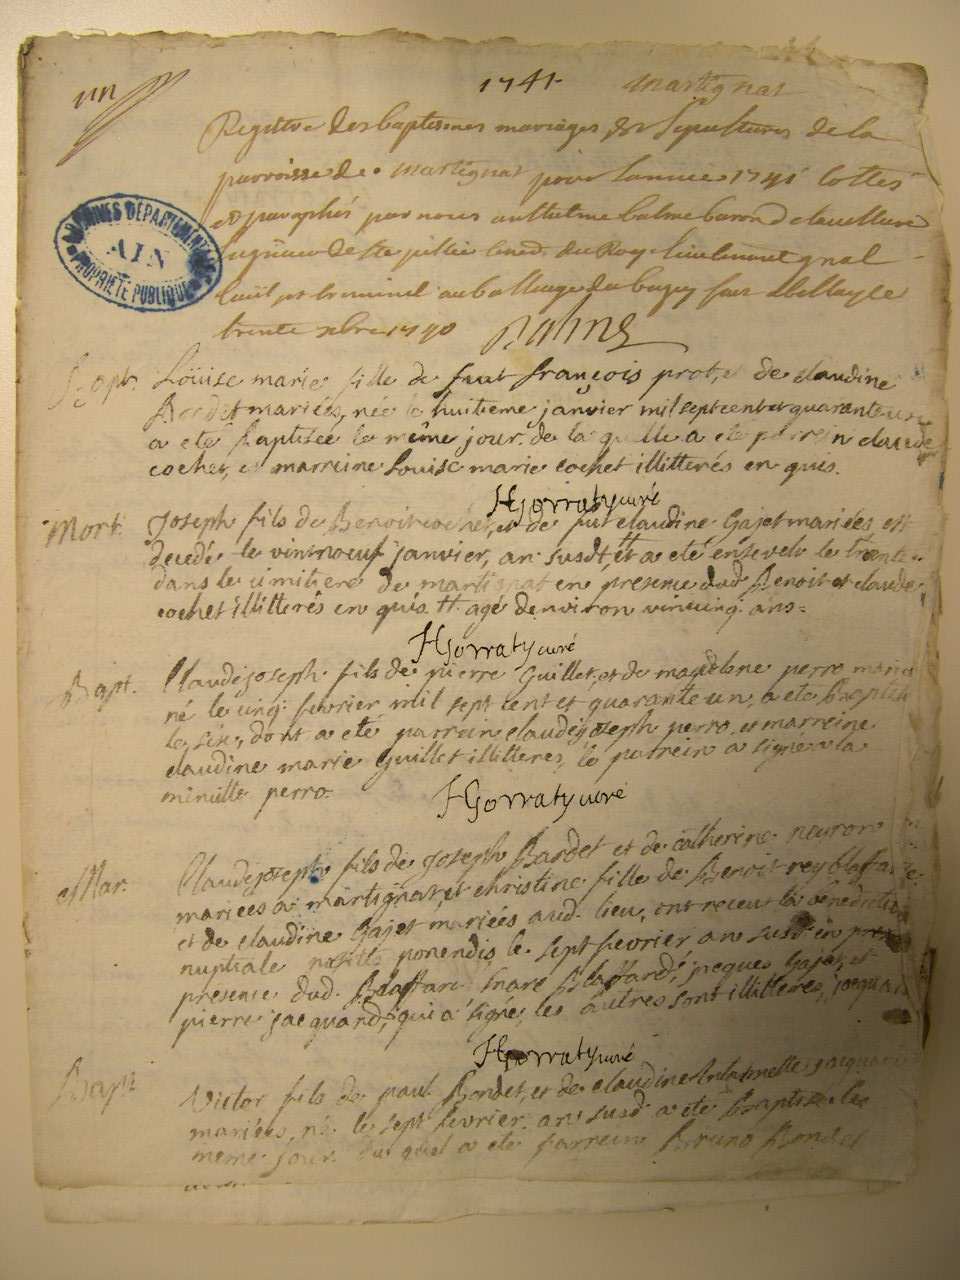 1741 martignat
un
Registre des baptesmes mariages et sepultures de la
parroisse de martignat pour lannee 1741 cottés
et paraphés par nous anthelme balme baron
de ste jullie du Roy lieutenant gnal
civil et criminel au balliage du bugey fait a belley le
trente xbre 1740 Balme
ARCHIVES DÉPARTEMENTALES
AIN
PROPRIÉTÉ PUBLIQUE
Bapt. Loüise marie fille de feut françois prot, et de claudine
Bordet mariés, née le huitieme janvier mil sept cent et quarante un
a eté Baptisée le même jour. de la quelle a eté parrein claude
cochet, et marreine Louise marie cochet illitterés en quis.
HGorraty curé
Mort. Joseph fils de Benoit cochet, et de fut claudine Gajet mariés est
decedé le vintnoeuf janvier, an susdt, et a eté enseveli le trente
dans le cimitiere de martignat en presence dud. Benoit et claude
cochet illitterés en quis tt. agé denviron vincinq ans=
HGorraty curé
Bapt. Claudejoseph fils de pierre Guillet, et de madelene perro mariés
né le cinq fevrier mil sept cent et quarante un, a eté Baptisé
le six, dont a eté parrein claudejoseph perro, et marreine
claudine marie Guillet illitteres, le parrein a signé a la
minutte perro.
HGorraty curé
Mar. Claudejoseph fils de Joseph Bardet et de catherine neyron
mariees a martignat, et christine fille de Benoit rey blaffard
et de claudine Gajet mariés aud. lieu, ont receu la bénédiction
nuptiale positis ponendis le sept fevrier an susd. en
presence dud. Blaffard marc Blaffard, jacques Gajet, et
pierre jacquand, qui a signé, les autres sont illitteres, jacquand
HGorraty curé
Bapt. Victor fils de paul Bondet, et de claudine
mariées, né le sept fevrier an susd. a eté Baptise le
meme jour du quel a eté parrein Bruno Bondet